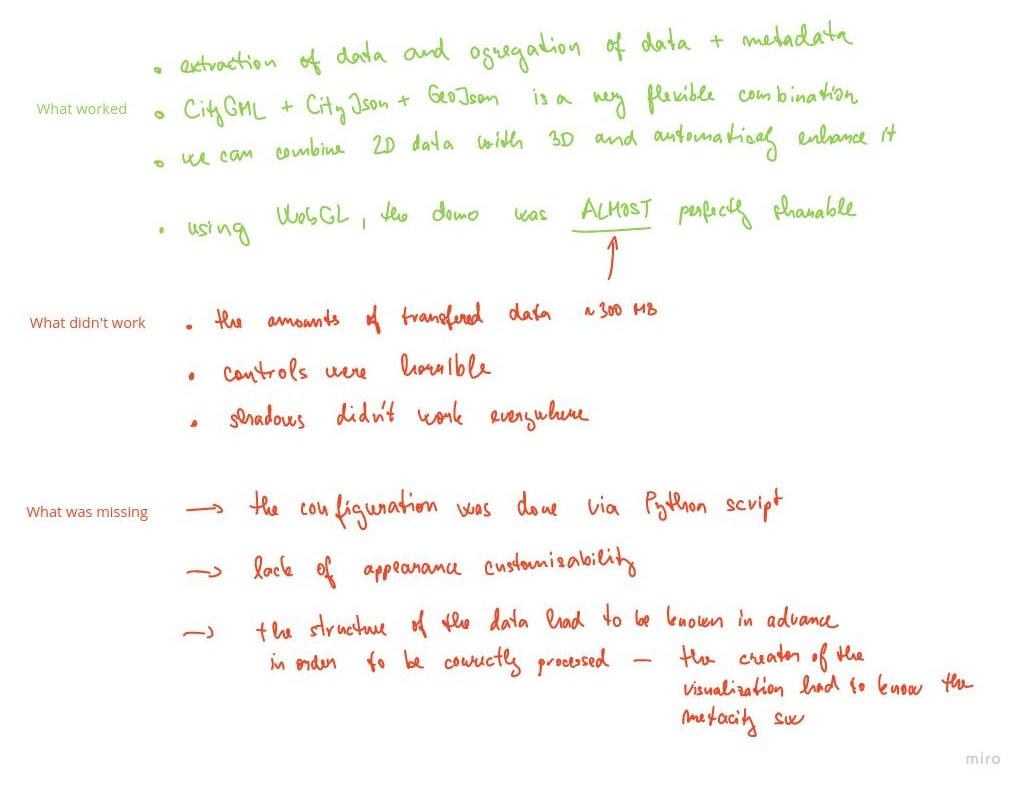 • extraction of data and agregation of data + metadata
What worked • CityGML + CityJson + GeoJson is a very flexible combination
• we can combine 2D data with 3D and automaticaly enhance it
• using WebGL, the demo was ALMOST perfectly sharable
What didn't work • the amounts of transfered data ~300 MB
• controls were horrible
• shadows didn't work everywhere
What was missing → the configuration was done via Python script
→ lack of appearance customisability
→ the structure of the data had to be known in advance
in order to be correctly processed — the creator of the
visualization had to know the
metacity sw
miro